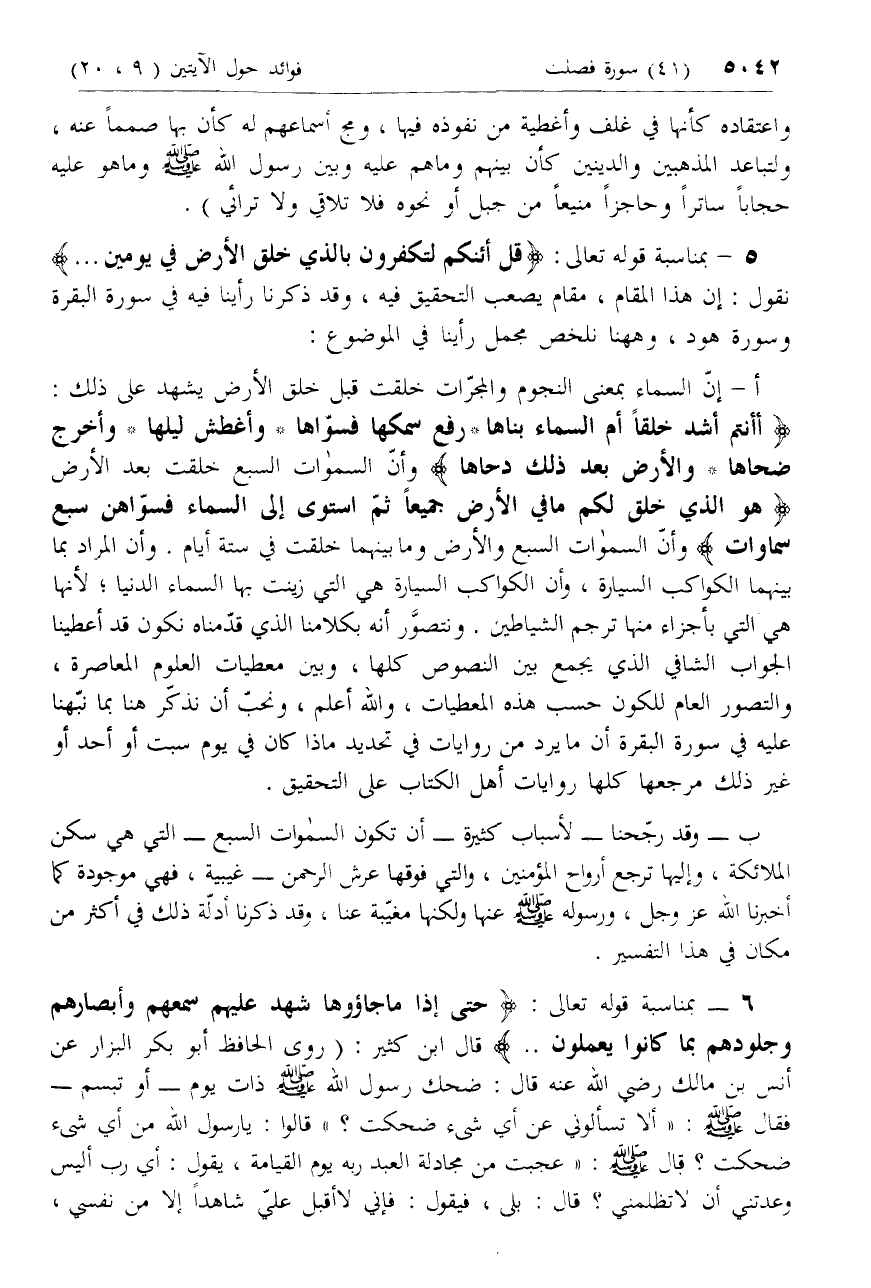 ٥٠٤٢ (٤١) سورة فصلت فوائد حول الآيتين ( ٩ ، ٢٠)
واعتقاده كأنها في غلف وأغطية من نفوذه فيها ، ومج أسماعهم له كأن بها صمماً عنه ،
ولتباعد المذهبين والدينين كأن بينهم وماهم عليه وبين رسول الله ﷺ وماهو عليه
حجاباً ساتراً وحاجزاً منيعاً من جبل أو نحوه فلا تلاقي ولا ترائي ) .
٥ – بمناسبة قوله تعالى : ﴿قل أئنكم لتكفرون بالذي خلق الأرض في يومين ...﴾
نقول : إن هذا المقام ، مقام يصعب التحقيق فيه ، وقد ذكرنا رأينا فيه في سورة البقرة
وسورة هود ، وههنا نلخص مجمل رأينا في الموضوع :
أ – إنّ السماء بمعنى النجوم والمجرّات خلقت قبل خلق الأرض يشهد على ذلك :
﴿ أأنتم أشد خلقاً أم السماء بناها * رفع سمكها فسوّاها * وأغطش ليلها * وأخرج
ضحاها * والأرض بعد ذلك دحاها ﴾ وأنّ السمٰوات السبع خلقت بعد الأرض
﴿ هو الذي خلق لكم مافي الأرض جميعاً ثمّ استوى إلى السماء فسوّاهن سبع
سماوات ﴾ وأنّ السمٰوات السبع والأرض ومابينهما خلقت في ستة أيام . وأن المراد بما
بينهما الكواكب السيارة ، وأن الكواكب السيارة هي التي زينت بها السماء الدنيا ؛ لأنها
هي التي بأجزاء منها ترجم الشياطين . ونتصوَّر أنه بكلامنا الذي قدّمناه نكون قد أعطينا
الجواب الشافي الذي يجمع بين النصوص كلها ، وبين معطيات العلوم المعاصرة ،
والتصور العام للكون حسب هذه المعطيات ، والله أعلم ، ونحبّ أن نذكّر هنا بما نبّهنا
عليه في سورة البقرة أن مايرد من روايات في تحديد ماذا كان في يوم سبت أو أحد أو
غير ذلك مرجعها كلها روايات أهل الكتاب على التحقيق .
ب – وقد رجّحنا – لأسباب كثيرة – أن تكون السمٰوات السبع – التي هي سكن
الملائكة ، وإليها ترجع أرواح المؤمنين ، والتي فوقها عرش الرحمن – غيبية ، فهي موجودة كما
أخبرنا الله عز وجل ، ورسوله ﷺ عنها ولكنها مغيّبة عنا ، وقد ذكرنا أدلّة ذلك في أكثر من
مكان في هذا التفسير .
٦ – بمناسبة قوله تعالى : ﴿ حتى إذا ماجاؤوها شهد عليهم سمعهم وأبصارهم
وجلودهم بما كانوا يعملون .. ﴾ قال ابن كثير : ( روى الحافظ أبو بكر البزار عن
أنس بن مالك رضي الله عنه قال : ضحك رسول الله ﷺ ذات يوم – أو تبسم –
فقال ﷺ : « ألا تسألوني عن أي شىء ضحكت ؟ » قالوا : يارسول الله من أي شىء
ضحكت ؟ قال ﷺ : « عجبت من مجادلة العبد ربه يوم القيامة ، يقول : أي رب أليس
وعدتني أن لاتظلمني ؟ قال : بلى ، فيقول : فإني لاأقبل عليّ شاهداً إلا من نفسي ،